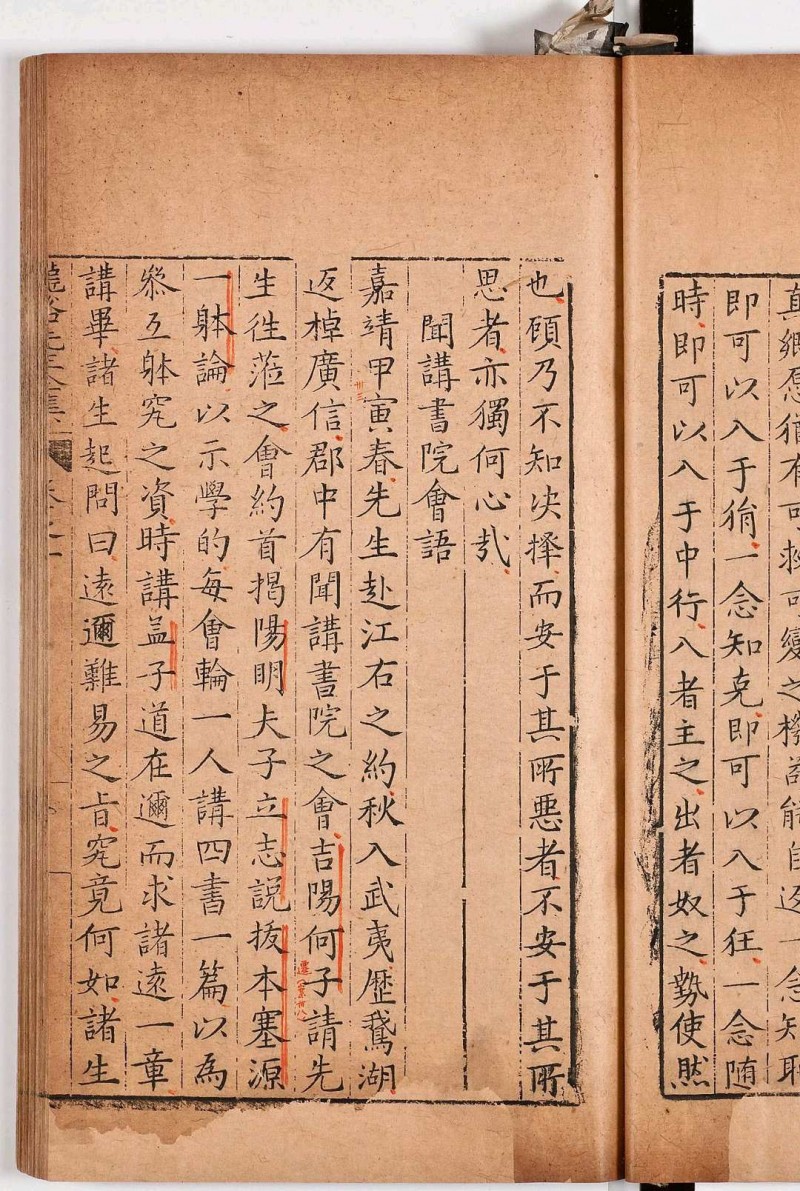 真鄉愿猶有可救可變之機苟能自返一念知恥
即可以入于狷一念知克即可以入于狂一念随
時即可以入于中行入者主之出者奴之勢使然
也顧乃不知决擇而安于其所惡者不安于其所
思者亦獨何心㢤
聞講書院會語
嘉靖甲寅春先生赴江右之約秋入武夷歷鵞湖
卅三
返棹廣信郡中有聞講書院之會吉陽何子請先
遷
生徃蒞之會約首揭陽明夫子立志説抜本塞源
一躰論以示學的每會輪一人講四書一篇以為
叅互躰究之資時講孟子道在邇而求諸遠一章
講畢諸生起問曰遠邇難易之㫖究竟何如諸生